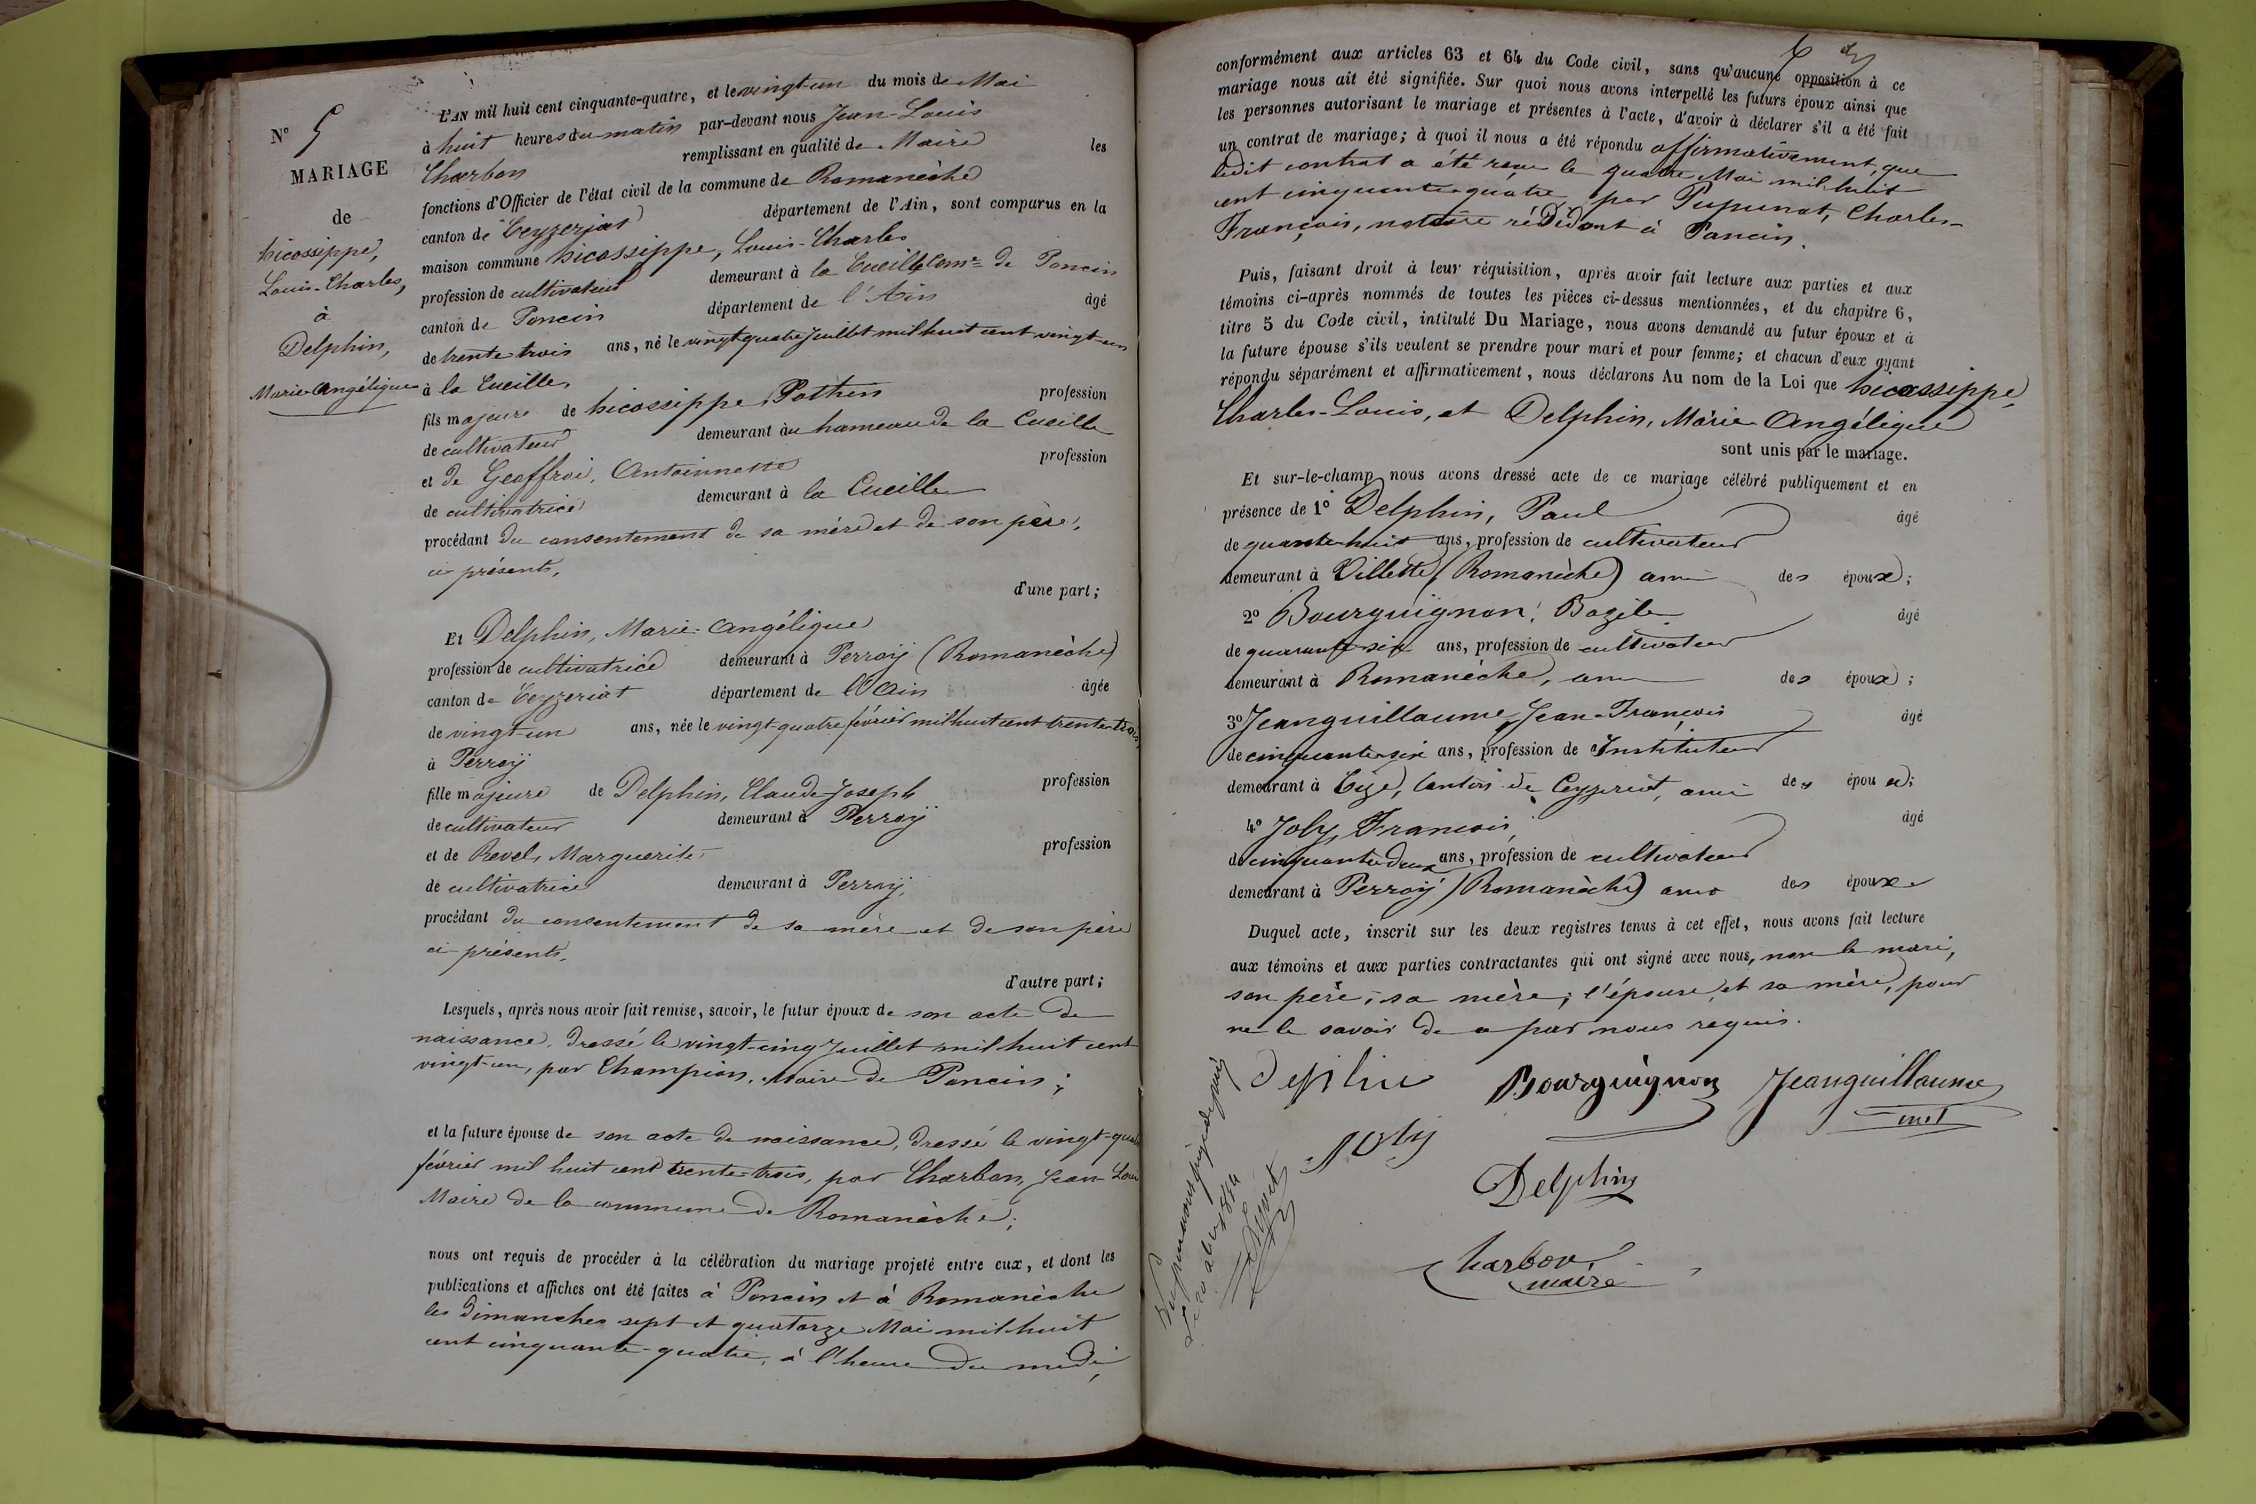 N° 5
MARIAGE
de
Nicossippe,
Louis-Charles,
à
Delphin,
Marie-Angélique
L'AN mil huit cent cinquante-quatre, et le vingt-un du mois de Mai
à huit heures du matin par-devant nous Jean-Louis
Charbon remplissant en qualité de Maire les
fonctions d'Officier de l'état civil de la commune de Romanèche
canton de Ceyzeriat département de l'Ain, sont comparus en la
maison commune Nicossippe, Louis-Charles
profession de cultivateur demeurant à la Cueille Comne de Poncin
canton de Poncin département de l'Ain âgé
de trente trois ans, né le vingt quatre Juillet mil huit cent vingt-un
à la Cueille,
fils majeure de Nicossippe, Pothin profession
de cultivateur demeurant au hameau de la Cueille
et de Geoffroi, Antoinnette profession
de cultivatrice demeurant à la Cueille
procédant du consentement de sa mère et de son père,
ci-présents,
d'une part;
Et Delphin, Marie-Angélique
profession de cultivatrice demeurant à Perroÿ (Romanèche)
canton de Ceyzeriat département de l'Ain âgée
de vingt-un ans, née le vingt-quatre février mil huit cent trente-trois,
à Perroÿ
fille majeure de Delphin, Claude-Joseph profession
de cultivateur demeurant à Perroÿ
et de Revel, Marguerite profession
de cultivatrice demeurant à Perroÿ,
procédant du consentement de sa mère et de son père
ci-présents,
d'autre part;
Lesquels, après nous avoir fait remise, savoir, le futur époux de son acte de
naissance, dressé le vingt-cinq Juillet mil huit cent
vingt-un, par Champion, Maire de Poncin;
et la future épouse de son acte de naissance, dressé le vingt-quatre
février mil huit cent trente-trois, par Charbon, Jean-Louis
Maire de la commune de Romanèche;
nous ont requis de procéder à la célébration du mariage projeté entre eux, et dont les
publications et affiches ont été faites à Poncin et à Romanèche
les dimanches sept et quatorze Mai mil huit
cent cinquante-quatre, à l'heure du midi,
conformément aux articles 63 et 64 du Code civil, sans qu'aucune opposition à ce
mariage nous ait été signifiée. Sur quoi nous avons interpellé les futurs époux ainsi que
les personnes autorisant le mariage et présentes à l'acte, d'avoir à déclarer s'il a été fait
un contrat de mariage; à quoi il nous a été répondu affirmativement, que
ledit contrat a été reçu le quatre Mai mil huit
cent cinquante-quatre, par Pupunat, Charles-
François, notaire résidant à Poncin.
Puis, faisant droit à leur réquisition, après avoir fait lecture aux parties et aux
témoins ci-après nommés de toutes les pièces ci-dessus mentionnées, et du chapitre 6,
titre 5 du Code civil, intitulé Du Mariage, nous avons demandé au futur époux et à
la future épouse s'ils veulent se prendre pour mari et pour femme; et chacun d'eux ayant
répondu séparément et affirmativement, nous déclarons Au nom de la Loi que Nicossippe,
Charles-Louis, et Delphin, Marie Angélique
sont unis par le mariage.
Et sur-le-champ nous avons dressé acte de ce mariage célébré publiquement et en
présence de 1° Delphin, Paul âgé
de quarante-huit ans, profession de cultivateur
demeurant à Villette (Romanèche) ami des époux;
2° Bourguignon, Bazile âgé
de quarante-six ans, profession de cultivateur
demeurant à Romanèche, ami des époux;
3° Jeanguillaume, Jean-François âgé
de cinquante-six ans, profession de Instituteur
demeurant à Cize, Canton de Ceyzeriat, ami des époux;
4° Joly, François, âgé
de cinquante-deux ans, profession de cultivateur
demeurant à Perroÿ (Romanèche) ami des époux.
Duquel acte, inscrit sur les deux registres tenus à cet effet, nous avons fait lecture
aux témoins et aux parties contractantes qui ont signé avec nous, non le mari,
son père, sa mère; l'épouse, et sa mère, pour
ne le savoir de ce par nous requis.
Delphin Bourguignon Jeanguillaume
Joly
Delphin
Charbon
maire